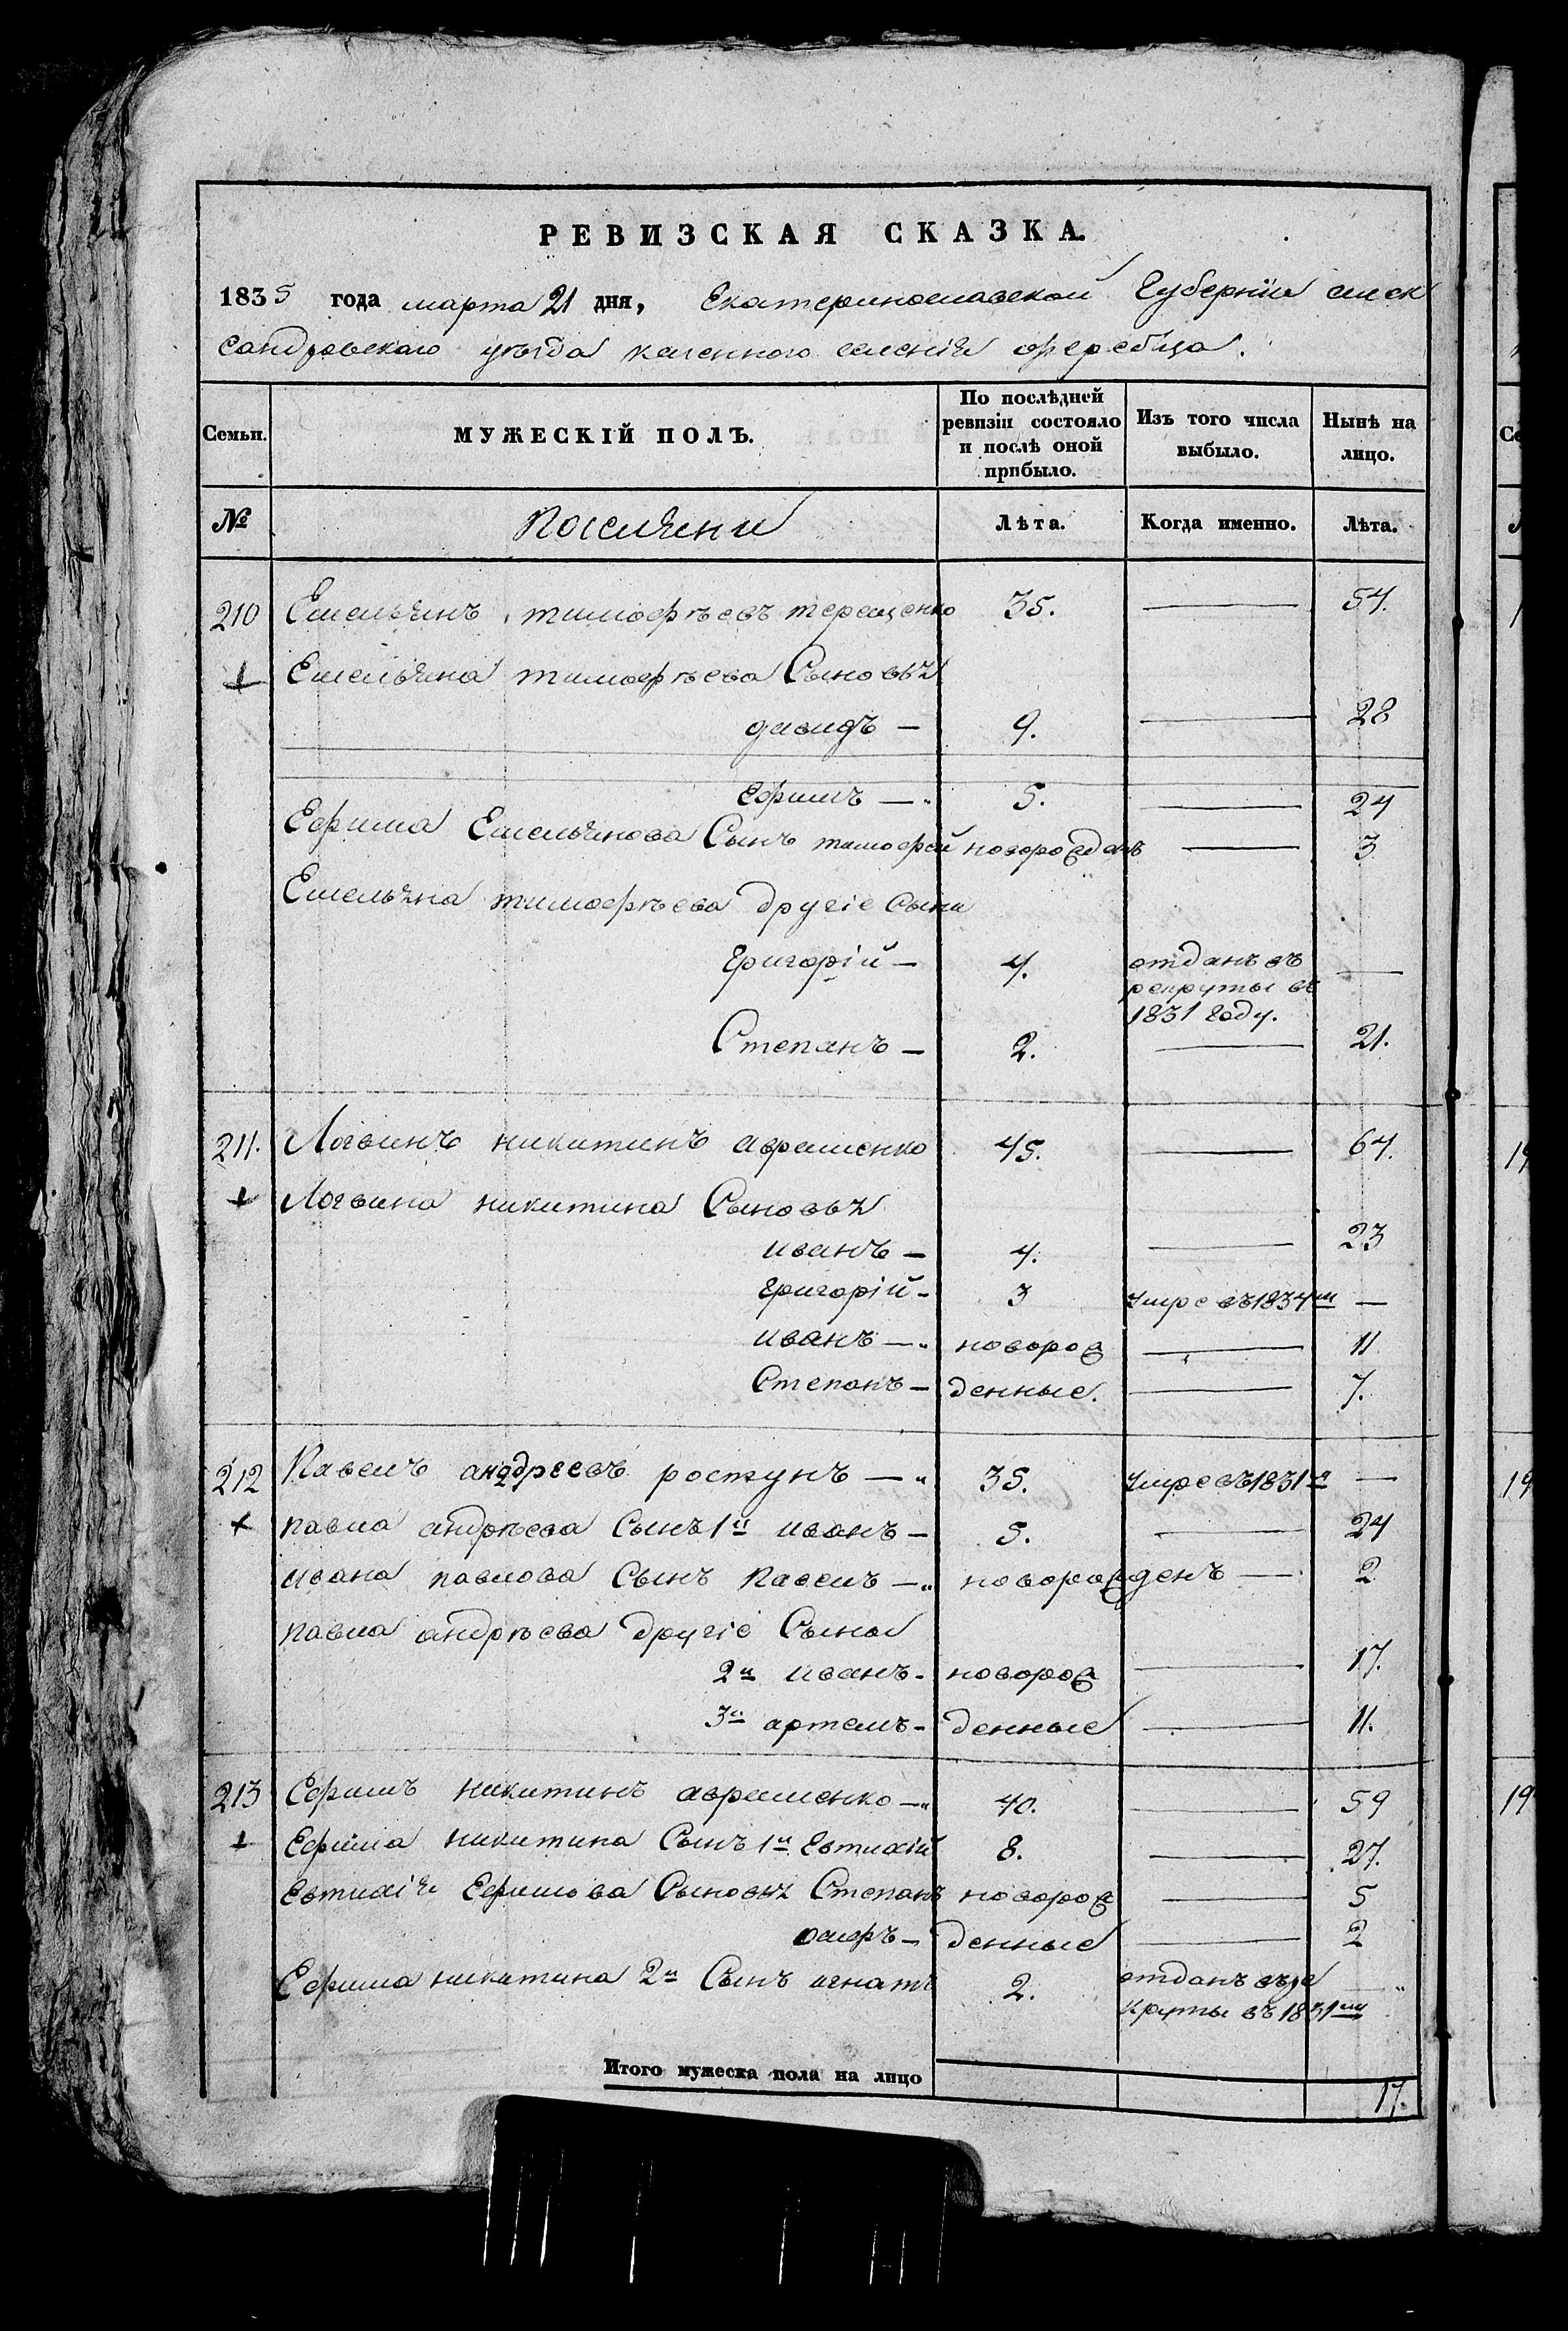 РЕВИЗСКАЯ СКАЗКА.
1835 года марта 21 дня, Екатеринославской Губерніи алек
сандровскаго уѣзда казенного селенія жеребца.
Семьи. МУЖЕСКІЙ ПОЛЪ. По послѣдней ревизіи состояло и послѣ оной прибыло. Изъ того числа выбыло. Нынѣ на лицо.
№ Поселяни Лѣта. Когда именно. Лѣта.
210 Емельянъ тимофѣевъ терещенко 35. — 54.
+ Емельяна тимофѣева Сыновья
давидъ — 9. — 28
Ефимъ — 5. — 24
Ефима Емельянова Сынъ тимофей новорожденъ — 3
Емельяна тимофѣева другіе Сыны
Григорій — 4. отданъ въ рекруты въ 1831 году. —
Степанъ — 2. — 21.
211. Логвинъ никитинъ авраменко 45. — 64.
+ Логвина никитина Сыновья
иванъ — 4. — 23
Григорій — 3 умре въ 1834м —
иванъ — новорож — 11
Степанъ — денные. — 7.
212 Павелъ андреевъ ростунъ — 35. умре въ 1831м —
+ павла андрѣева Сынъ 1й иванъ — 5. — 24
ивана павлова Сынъ Павелъ — новорожденъ — 2
павла андрѣева другіе Сыны
2й иванъ — новорож — 17.
3й артемъ — денные — 11.
213 Ефимъ никитинъ авраменко — 40. — 59
+ Ефима никитина Сынъ 1й Евтихій 8. — 27.
Евтихія Ефимова Сыновья Степанъ новорож — 5
— денные — 2
Ефима никитина 2й Сынъ игнатъ 2. отданъ въ ре круты въ 1831м —
Итого мужеска пола на лицо 17.